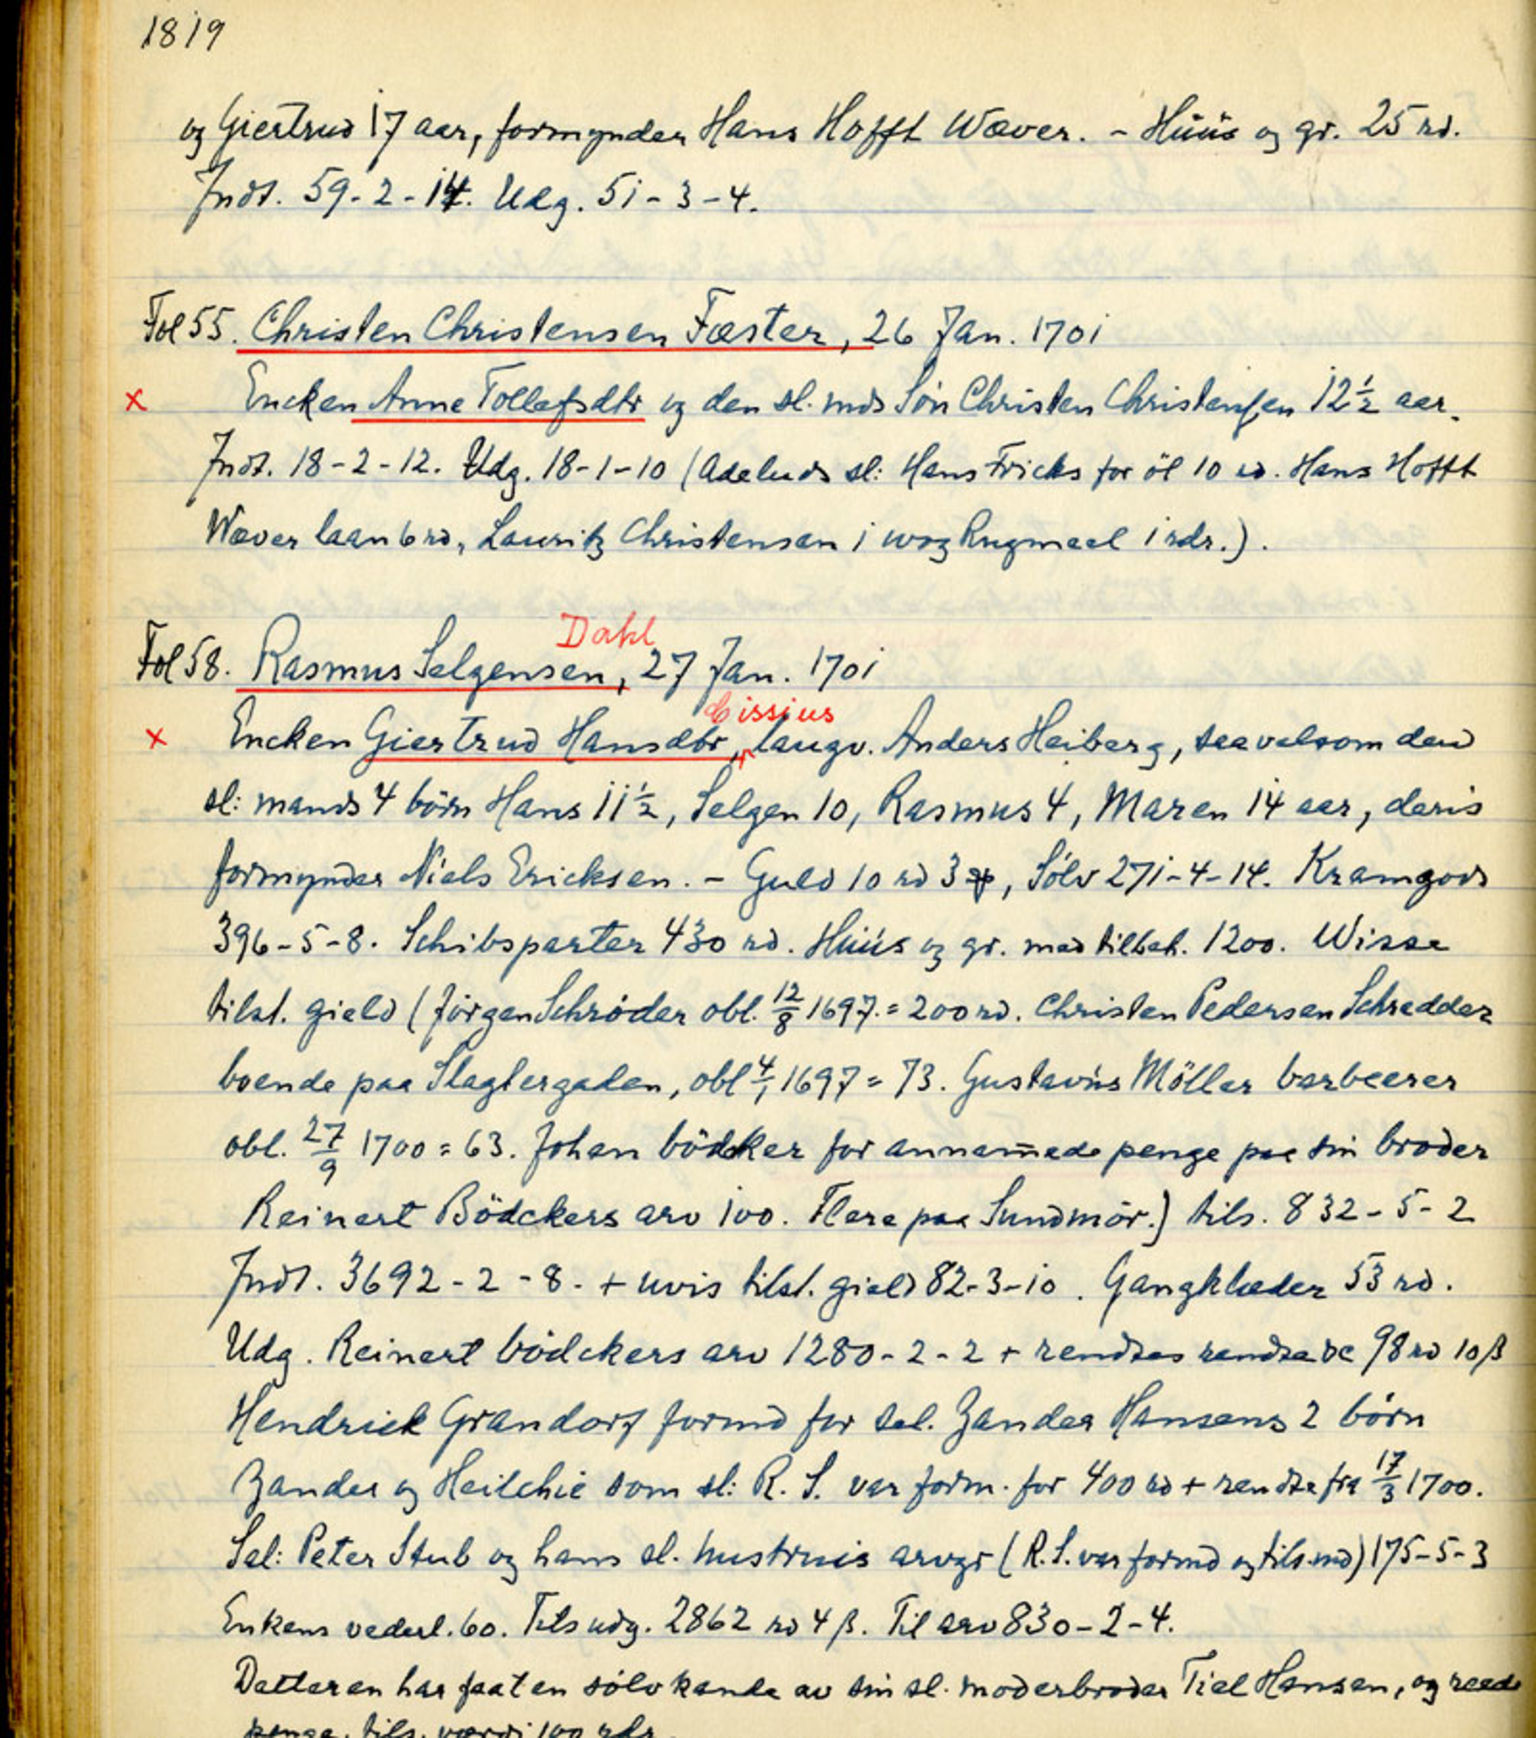 1819
og Giertrud 17 aar, formynder Hans Hofft Wæver. - Huus og gr. 25 rd.
Indt. 59-2-14. Udg. 51-3-4.
Fol 55. Christen Christensen Fæster, 26 Jan. 1701
x Encken Anne Tollefsdtr og den sl. mds Søn Christen Christensen 12½ aar.
Indt. 18-2-12. Udg. 18-1-10 (Adeluds sl: Hans Fricks for öl 10 rd. Hans Hofft
Wæver laan 6 rd, Lauritz Christensen 1 wog Rugmeel 1 rdr.).
Dahl
Fol 58. Rasmus Selgensen, 27 Jan. 1701
Cissius
x Encken Giertrud Hansdtr, laugv. Anders Heiberg, saavelsom den
sl: mands 4 börn Hans 11½, Selgen 10, Rasmus 4, Maren 14 aar, deris
formynder Niels Ericksen. - Guld 10 rd 3 , Sölv 271-4-14. Kramgods
396-5-8. Schibsparter 430 rd. Huus og gr. med tilbeh. 1200. Wisse
tilst. gield (Jörgen Schröder obl. 12/8 1697 = 200 rd. Christen Pedersen Schredder
boende paa Slagtergaden, obl 4/1 1697 = 73. Gustavus Möller barbeerer
obl. 27/9 1700 = 63. Johan bödker for annammede penge paa sin broder
Reinert Bödckers arv 100. Flere paa Sundmör.) tils. 832-5-2
Indt. 3692-2-8. + uvis tilst. gield 82-3-10. Gangklæder 53 rd.
Udg. Reinert bödckers arv 1280-2-2 + rendtes 98 rd 10 ß
Hendrick Grandorf formd for sal. Zander Hansens 2 börn
Zander og Heilchie som sl: R. S. var form. for 400 rd + rendte fra 17/3 1700.
Sal: Peter Stub og hans sl. hustruis arvgr (R.S. var formd og tils.md) 175-5-3
Enkens vederl. 60. Tils udg. 2862 rd 4 ß. Til arv 830-2-4.
Datteren har faat en sölv kande av sin sl. moderbroder Tiel Hansen, og reede
penge, tils. værdi 100 rdr.